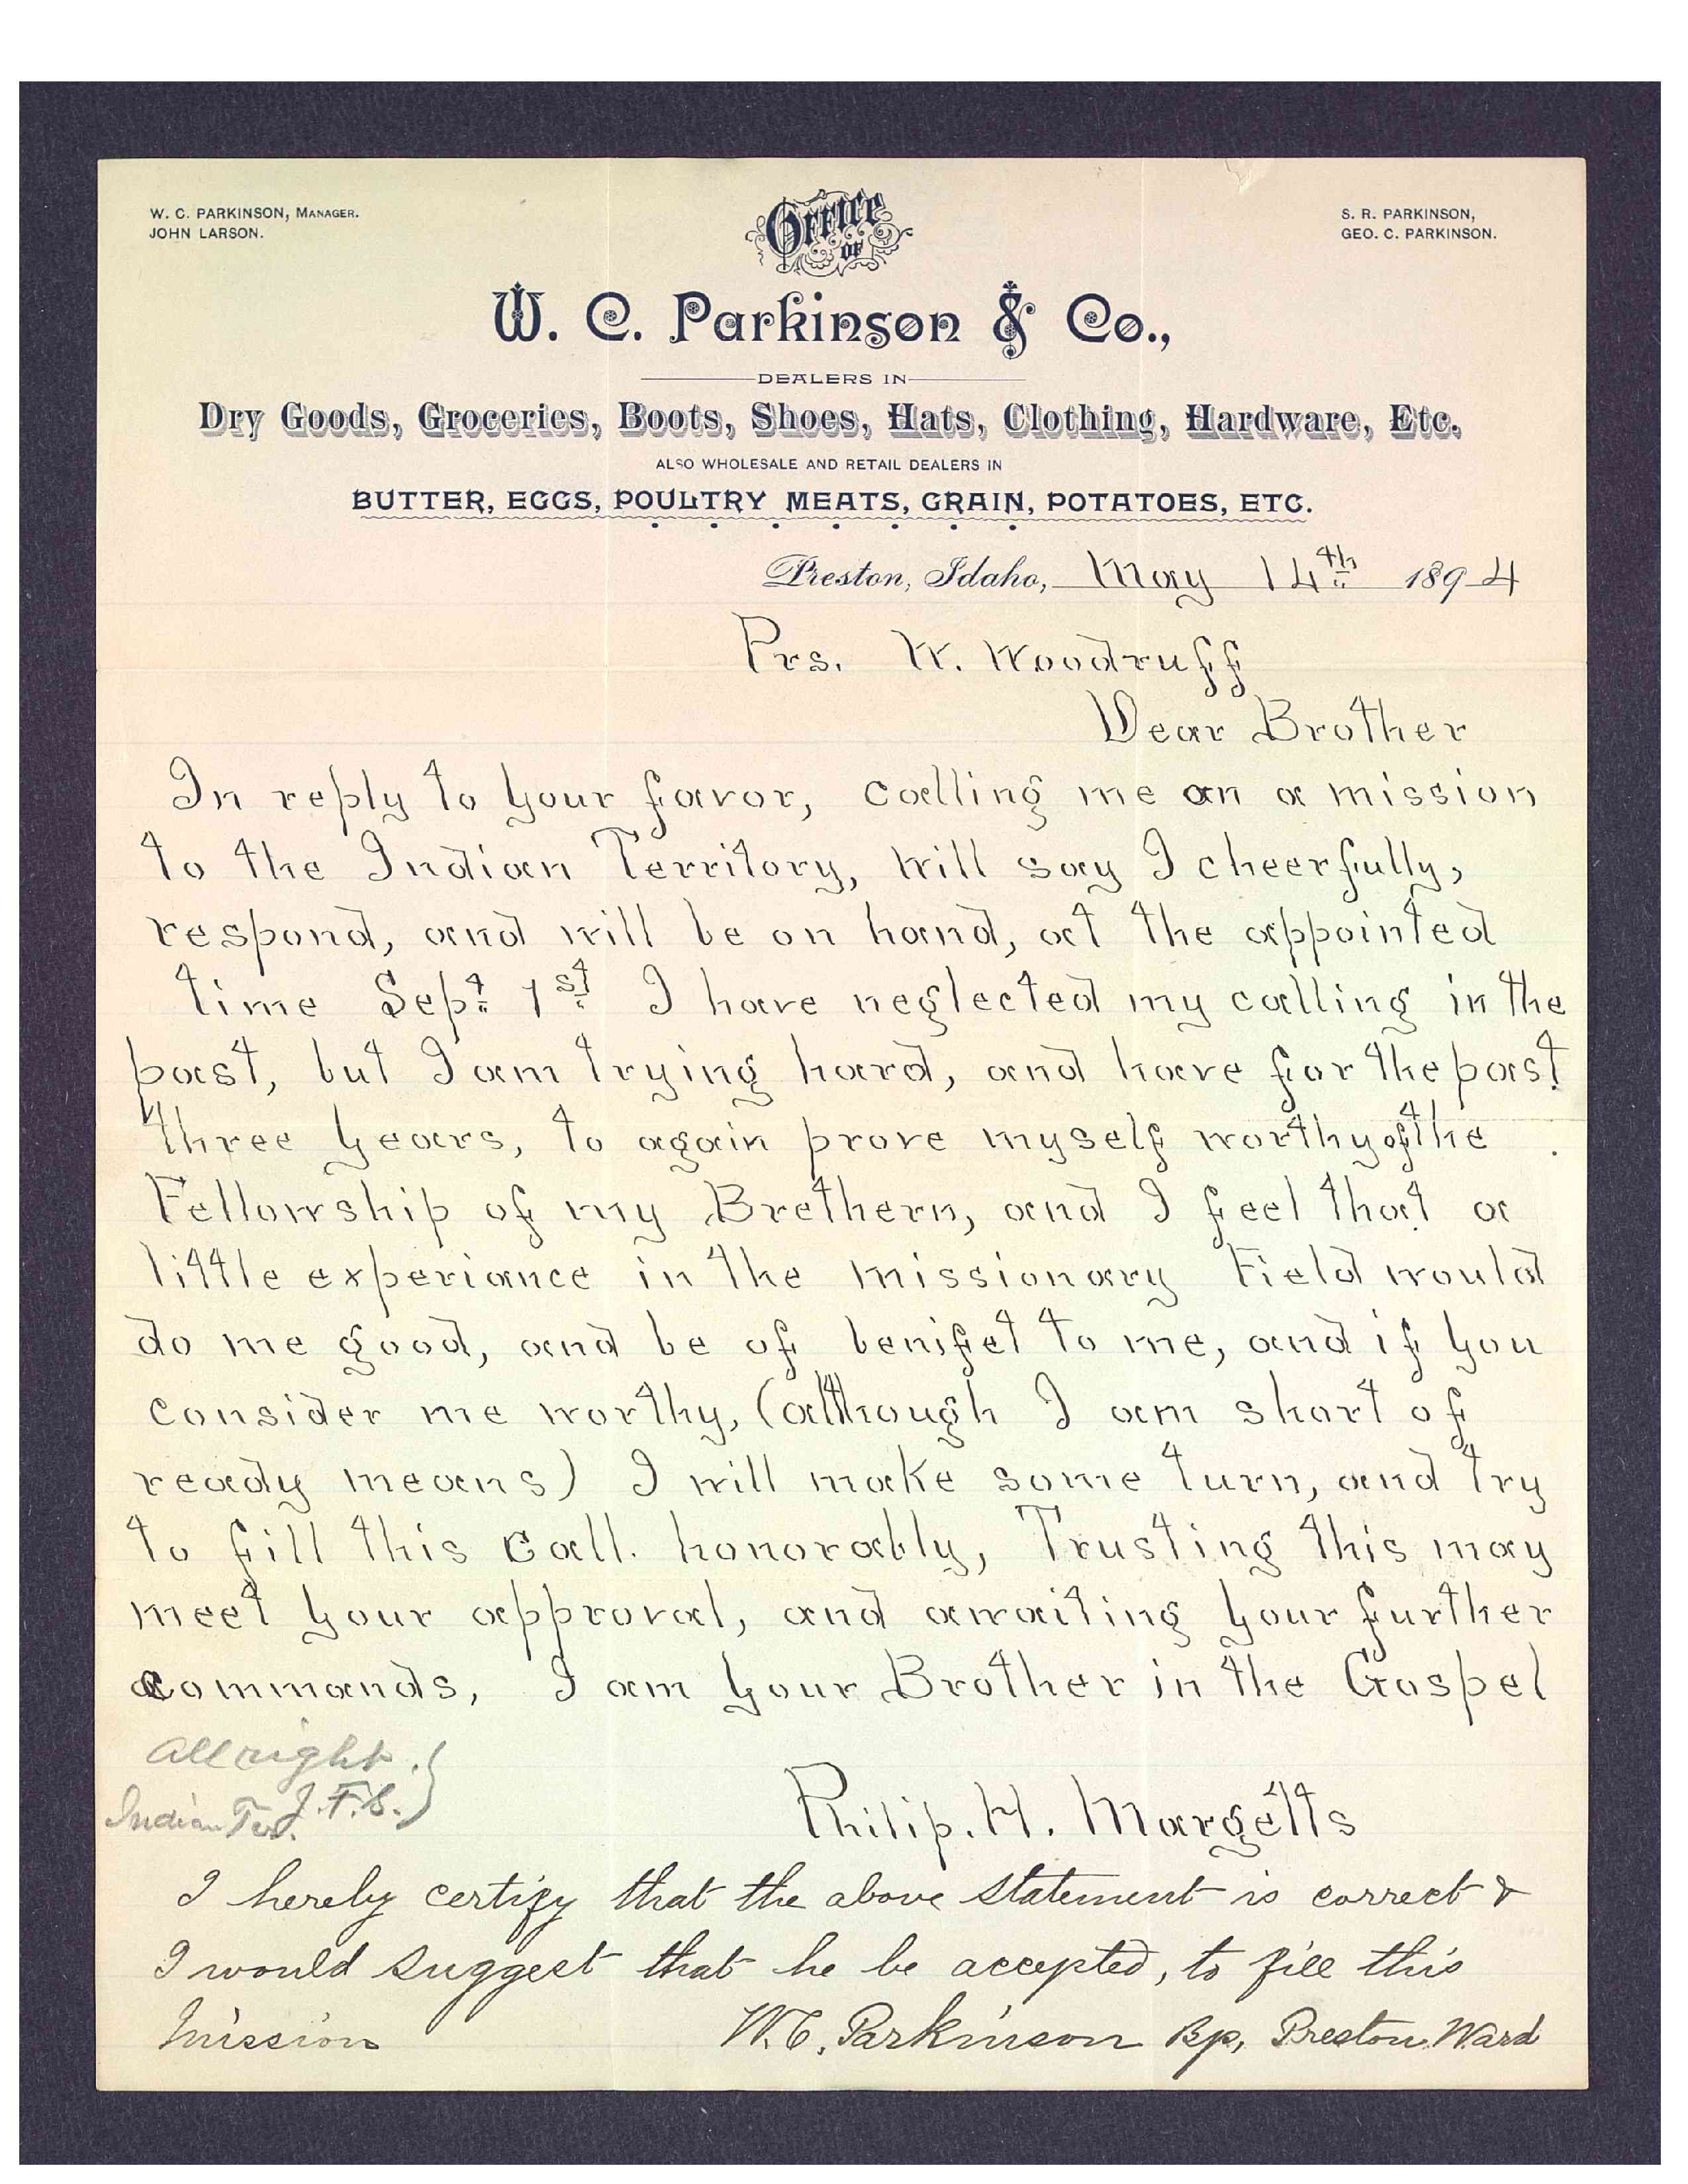 W. C. PARKINSON, MANAGER.
JOHN LARSON.
OFFICE
OF
S. R. PARKINSON,
GEO. C. PARKINSON.
W. C. Parkinson & Co.,
DEALERS IN
Dry Goods, Groceries, Boots, Shoes, Hats, Clothing, Hardware, Etc.
ALSO WHOLESALE AND RETAIL DEALERS IN
BUTTER, EGGS, POULTRY MEATS, GRAIN, POTATOES, ETC.
Preston, Idaho, May 14th 1894
Prs. W. Woodruff
Dear Brother
In reply to your favor, calling me on a mission
to the Indian Territory, will say I cheerfully,
respond, and will be on hand, at the appointed
time Sept 1st I have neglected my calling in the
past, but I am trying hard, and have for the past
three years, to again prove myself worthy of the
Fellowship of my Brethern, and I feel that a
little experiance in the missionary Field would
do me good, and be of benifet to me, and if you
consider me worthy, (although I am short of
ready means) I will make some turn, and try
to fill this call. honorably, Trusting this may
meet your approval, and awaiting your further
commands, I am your Brother in the Gospel
All right.
J. F. S.
Indian Ter.
Philip. H. Margetts
I hereby certify that the above statement is correct &
I would suggest that he be accepted, to fill this
Mission W. C. Parkinson Bp, Preston Ward